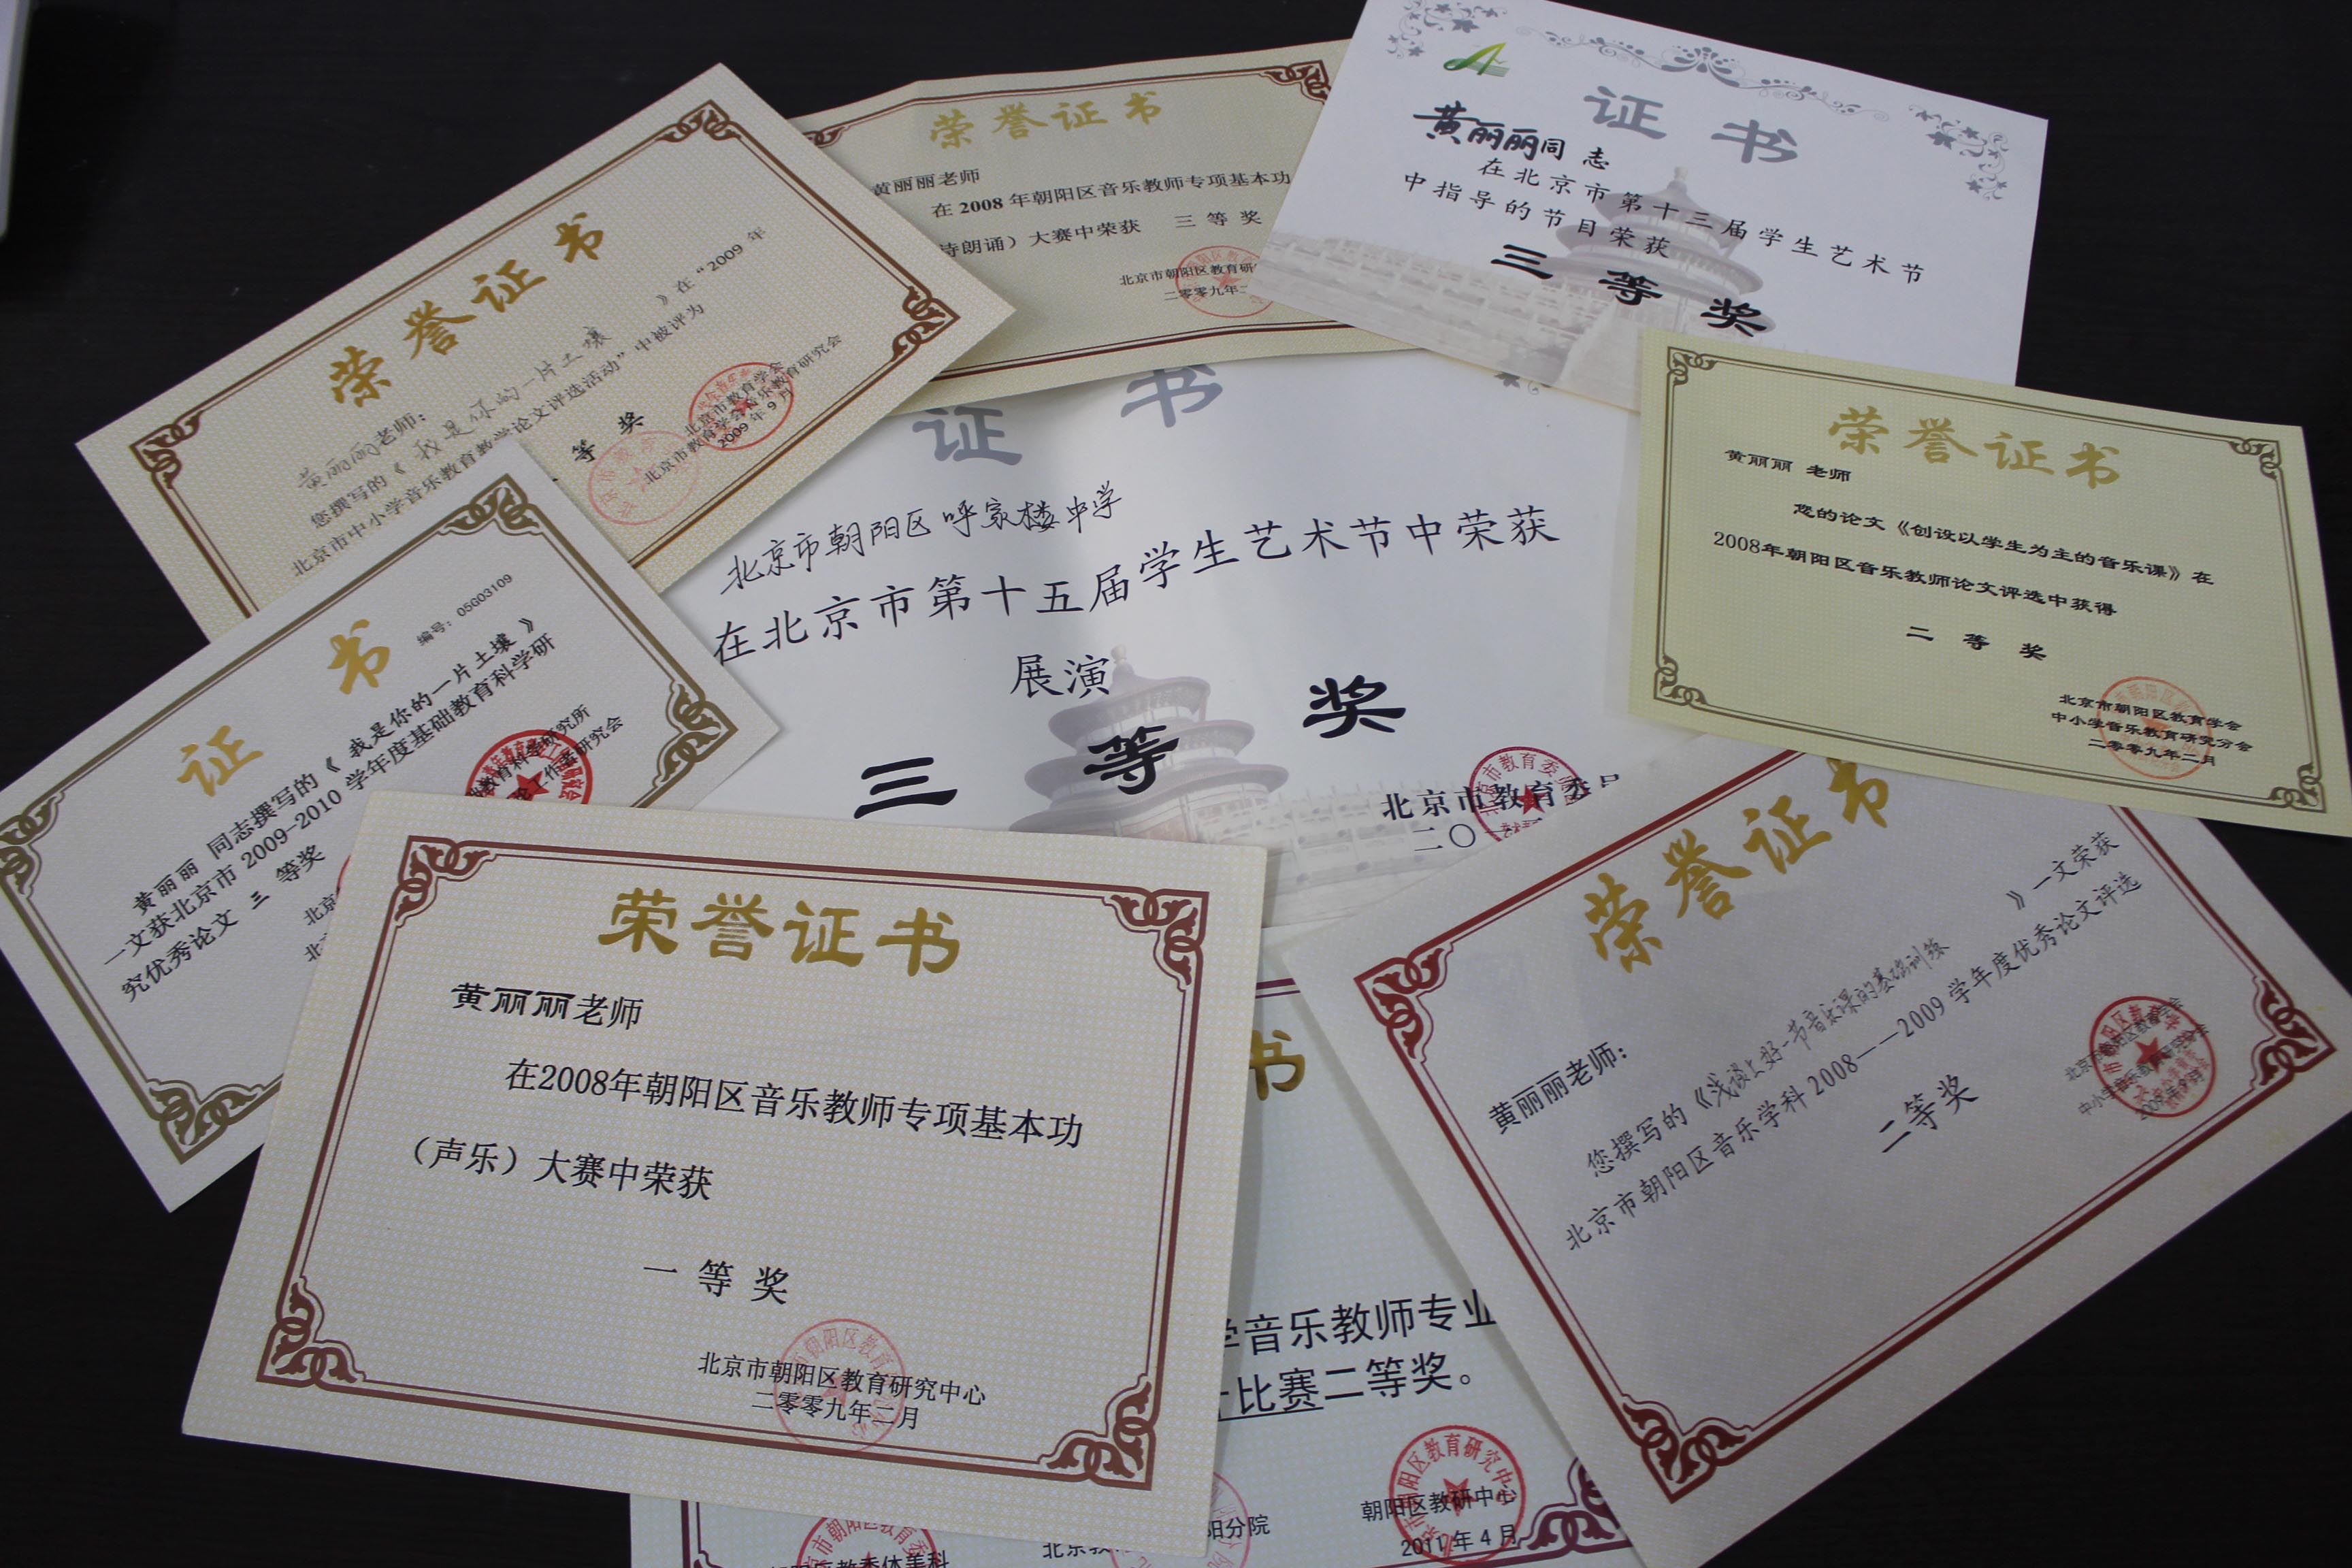 荣誉证书
黄丽丽老师
在 2008 年朝阳区音乐教师专项基本功
诗朗诵）大赛中荣获 三 等 奖
北京市朝阳区教育研
二零零九年二
证 书
黄丽丽同 志
在北京市第十三届学生艺术节
中指导的节目荣获
三 等 奖
荣誉证书
黄丽丽老师：
您撰写的《 我是你的一片土壤 》在“2009 年
北京市中小学音乐教育教学论文评选活动”中被评为
等 奖
北京市教育学会
北京市教育学会音乐教育研究会
2009 年 9 月
证 书
北京市朝阳区呼家楼中学
在北京市第十五届学生艺术节中荣获
展演
三 等 奖
北京市教育委员
二〇一
荣誉证书
黄丽丽 老师
您的论文《创设以学生为主的音乐课》在
2008年朝阳区音乐教师论文评选中获得
二 等 奖
北京市朝阳区教育学会
中小学音乐教育研究分会
二零零九年二月
证 书
编号：05G03109
黄丽丽 同志撰写的《 我是你的一片土壤 》
一文获北京市 2009-2010 学年度基础教育科学研
究优秀论文 三 等奖
教育科学研究所
论工作者研究会
北京
北
荣誉证书
黄丽丽老师
在2008年朝阳区音乐教师专项基本功
（声乐）大赛中荣获
一 等 奖
北京市朝阳区教育研究中心
二零零九年二月
荣誉证书
黄丽丽老师：
您撰写的《浅谈上好一节音乐课的基础训练 》一文荣获
北京市朝阳区音乐学科 2008——2009 学年度优秀论文评选
二等奖
北京市朝阳区教育学会
中小学音乐教育研究分会
书
学音乐教师专业
比赛二等奖。
朝阳区教委体美科
北京教
阳分院
朝阳区教研中心
2011 年 4 月